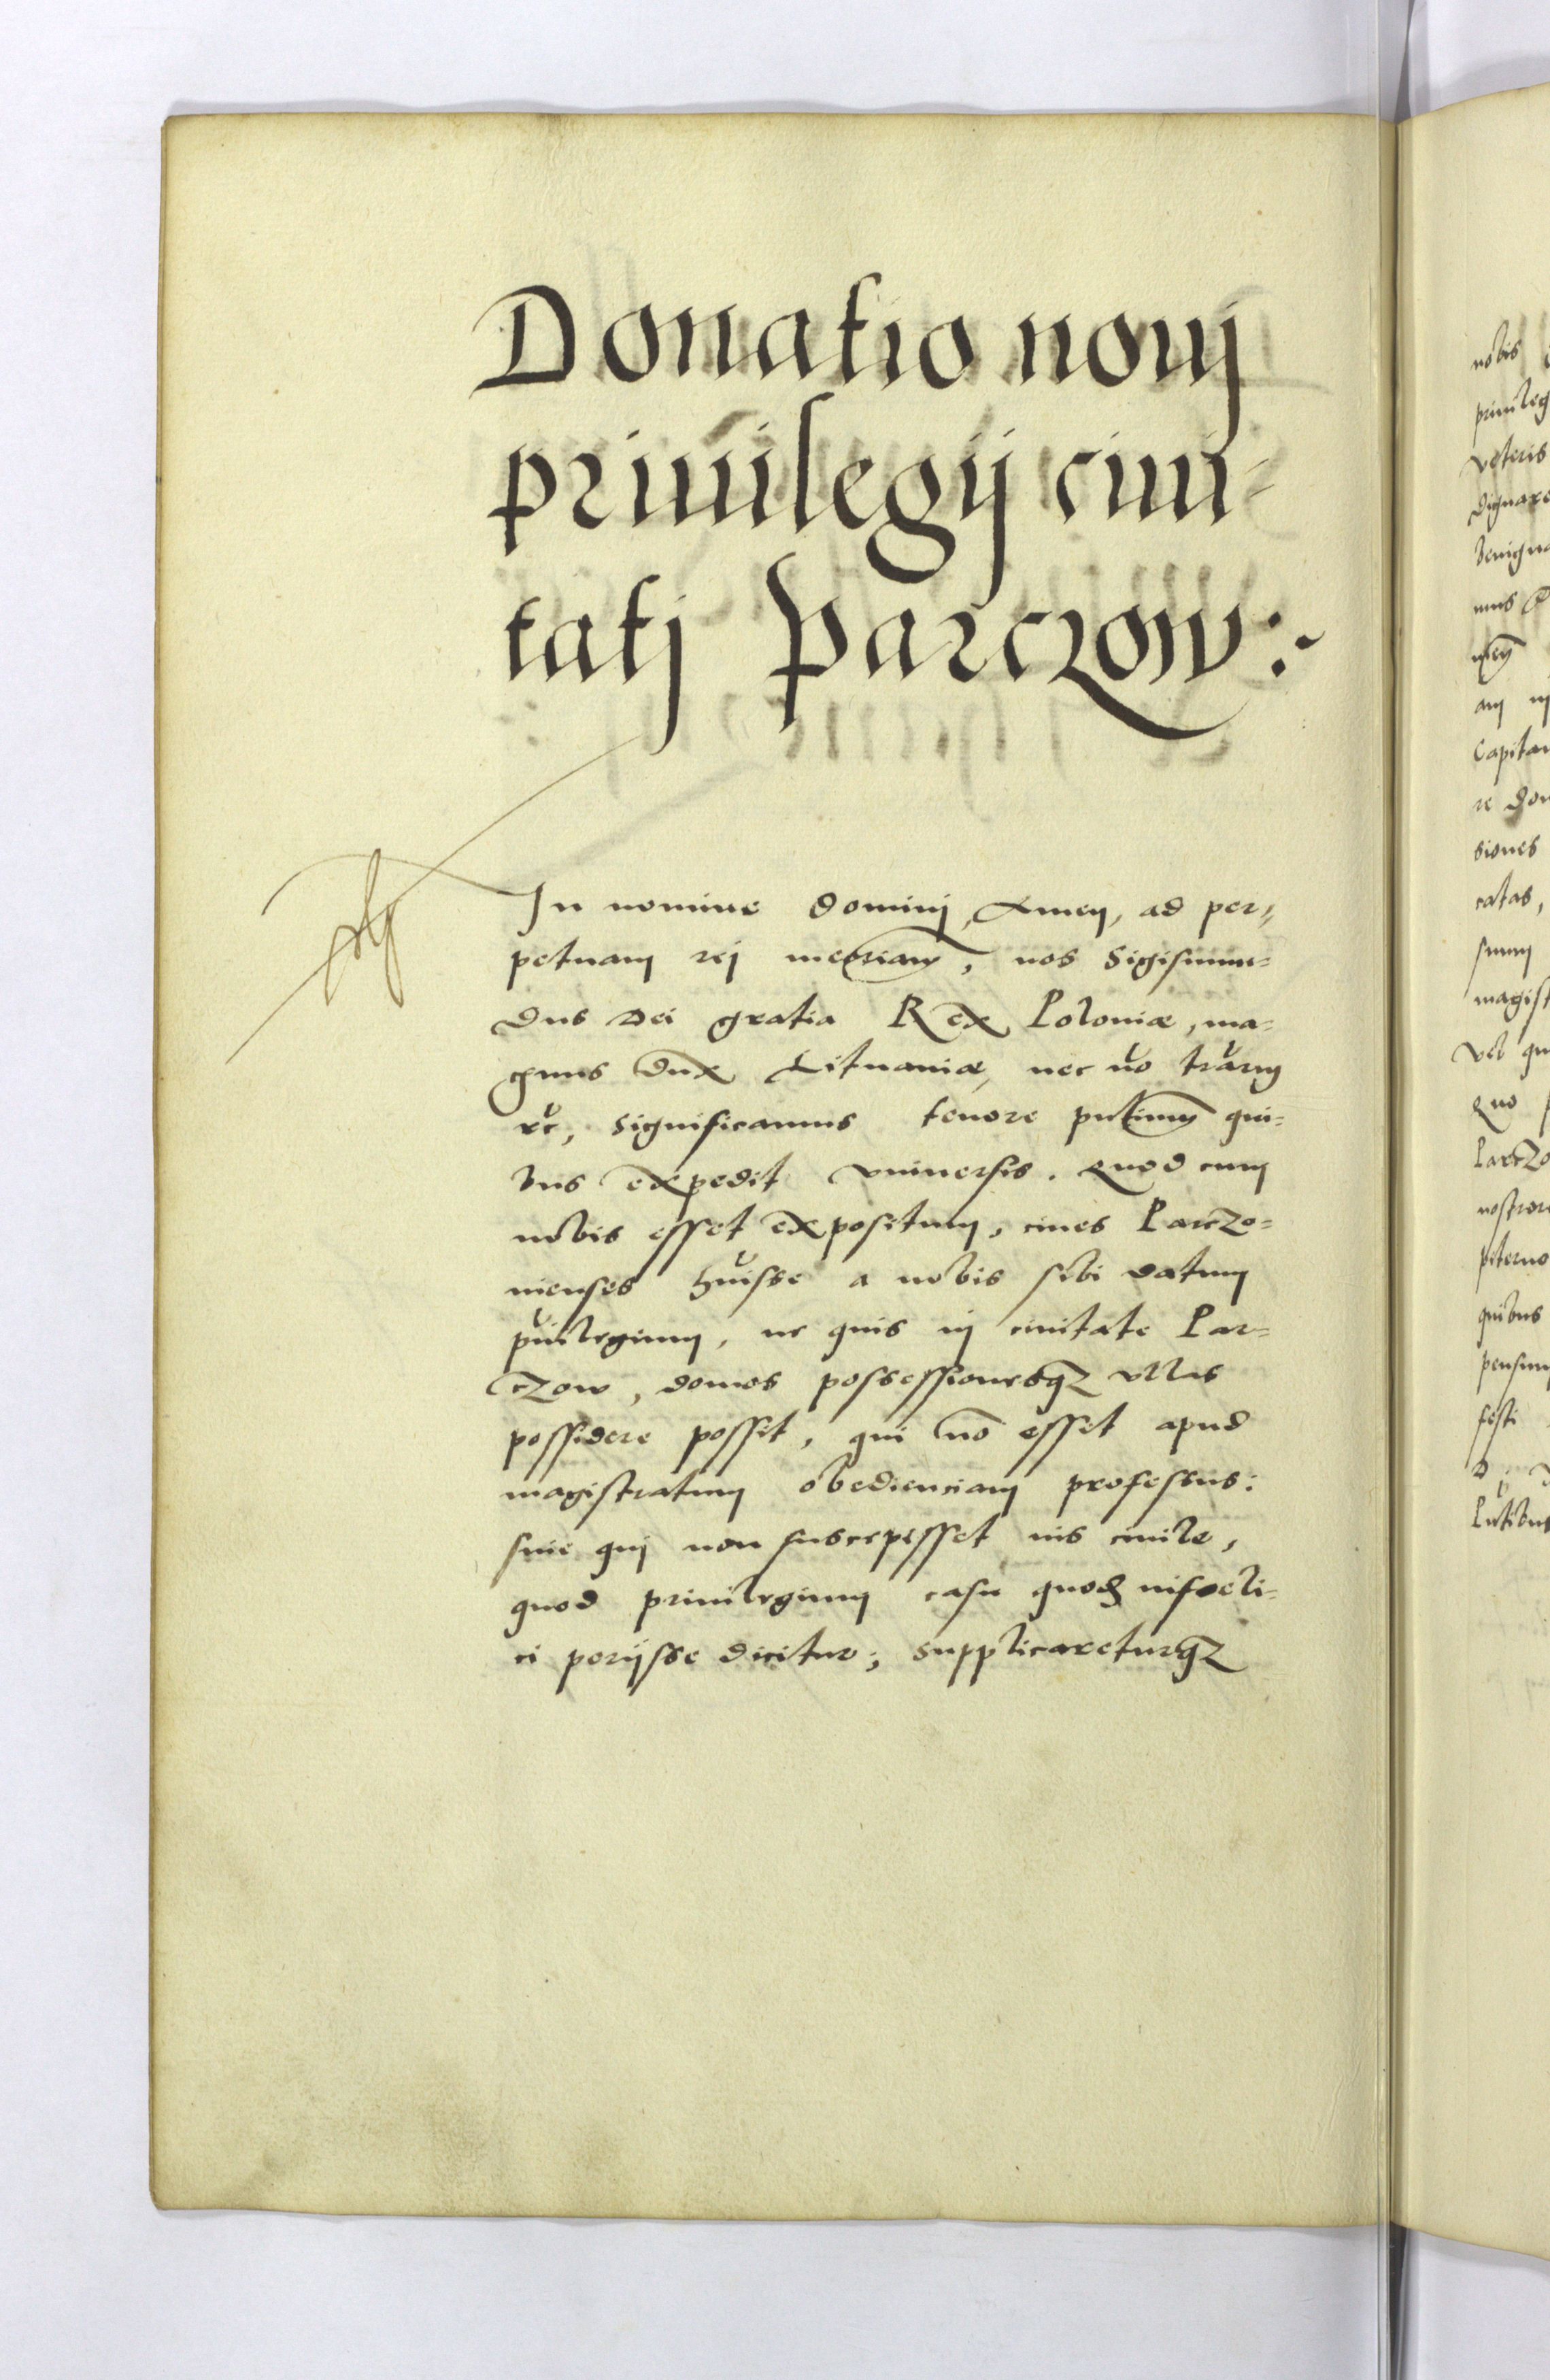 Donatio nouj
priuilegij ciui-
tatj Parczow:~
In nomine dominj, Amen, ad per„
petuam rej mẽoriam, nos Sigismun=
dus Dei gratia Rex Poloniæ, ma=
gnus dux Lituaniæ, nec nõ trarum
&c, significamus tenore pñtium qui=
bus expedit vniuersis. Quod cum
nobis esset expositum, ciues Parczo=
uienses hũisse a nobis sibi datum
pũilegium, ne quis in ciuitate Par=
czow, domos possessionesq₃ vllas
possidere posset, qui nõ esset apud
magistratum obedienciam professus:
siue qui non suscepisset ius ciuile,
quod priuilegium casu quod̃ infoeli=
ci perijsse dicitur; supplicareturq₃
nobis
priuileg
veteris
dignare
benigna
mus
am in
Capitan
re
siones
catas,
suum
magist
vel qu
quo
Parczo
nostror
piterno
quibus
pensum
festi